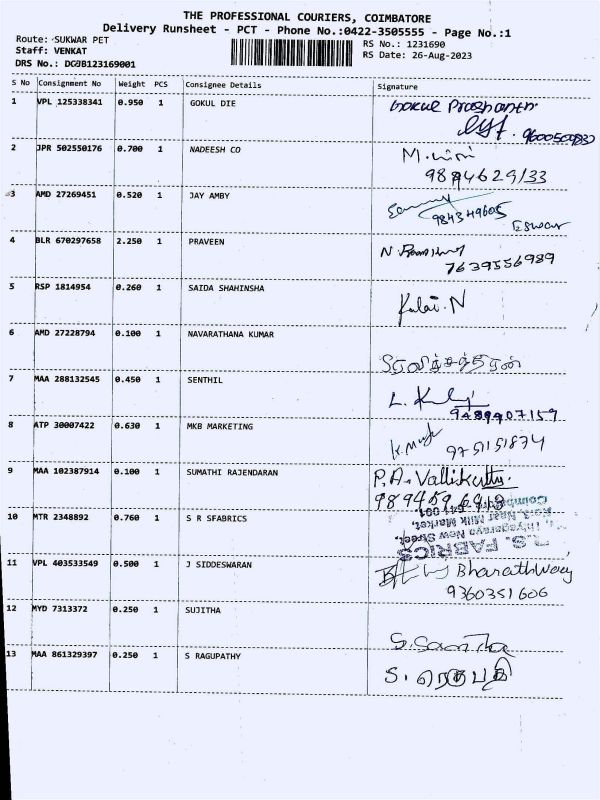 THE PROFESSIONAL COURIERS, COIMBATORE
Delivery Runsheet - PCT - Phone No.:0422-3505555 - Page No.:1
Route: SUKWAR PET
Staff: VENKAT
DRS No.: DC0B123169001
RS No.: 1231690
RS Date: 26-Aug-2023
S No Consignment No Weight PCS Consignee Details Signature
1 VPL 125338341 0.950 1 GOKUL DIE Gokul Prashanth
9600500830
2 JPR 502550176 0.700 1 NADEESH CO
9894629133
3 AMD 27269451 0.520 1 JAY AMBY
984349605
Eswar
4 BLR 670297658 2.250 1 PRAVEEN
7639556989
5 RSP 1814954 0.260 1 SAIDA SHAHINSHA
Kalai.N
6 AMD 27228794 0.100 1 NAVARATHANA KUMAR
7 MAA 288132545 0.450 1 SENTHIL
9489907159
8 ATP 30007422 0.630 1 MKB MARKETING
9751151874
9 MAA 102387914 0.100 1 SUMATHI RAJENDARAN P.A. Vallikutty
10 MTR 2348892 0.760 1 S R SFABRICS
Coimbatore - 641 001.
Milk Market,
Thiyagaraya New Street,
S. FABRICS
11 VPL 403533549 0.500 1 J SIDDESWARAN Bharathwaj
9360351606
12 MYD 7313372 0.250 1 SUJITHA
13 MAA 861329397 0.250 1 S RAGUPATHY S. ரெகுபதி